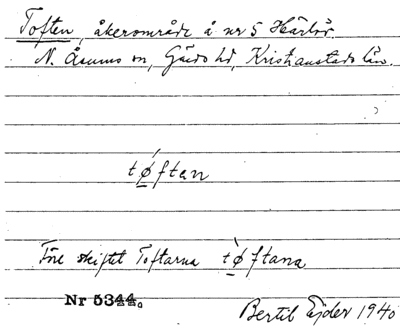 Toften, åkerområde å nr 5 Härlöv.
N. Åsums sn, Gärds hd, Kristianstads län.
tǿftan
Före skiftet Toftarna tø̀ftana
Nr 5344.
Bertil Ejder 1940